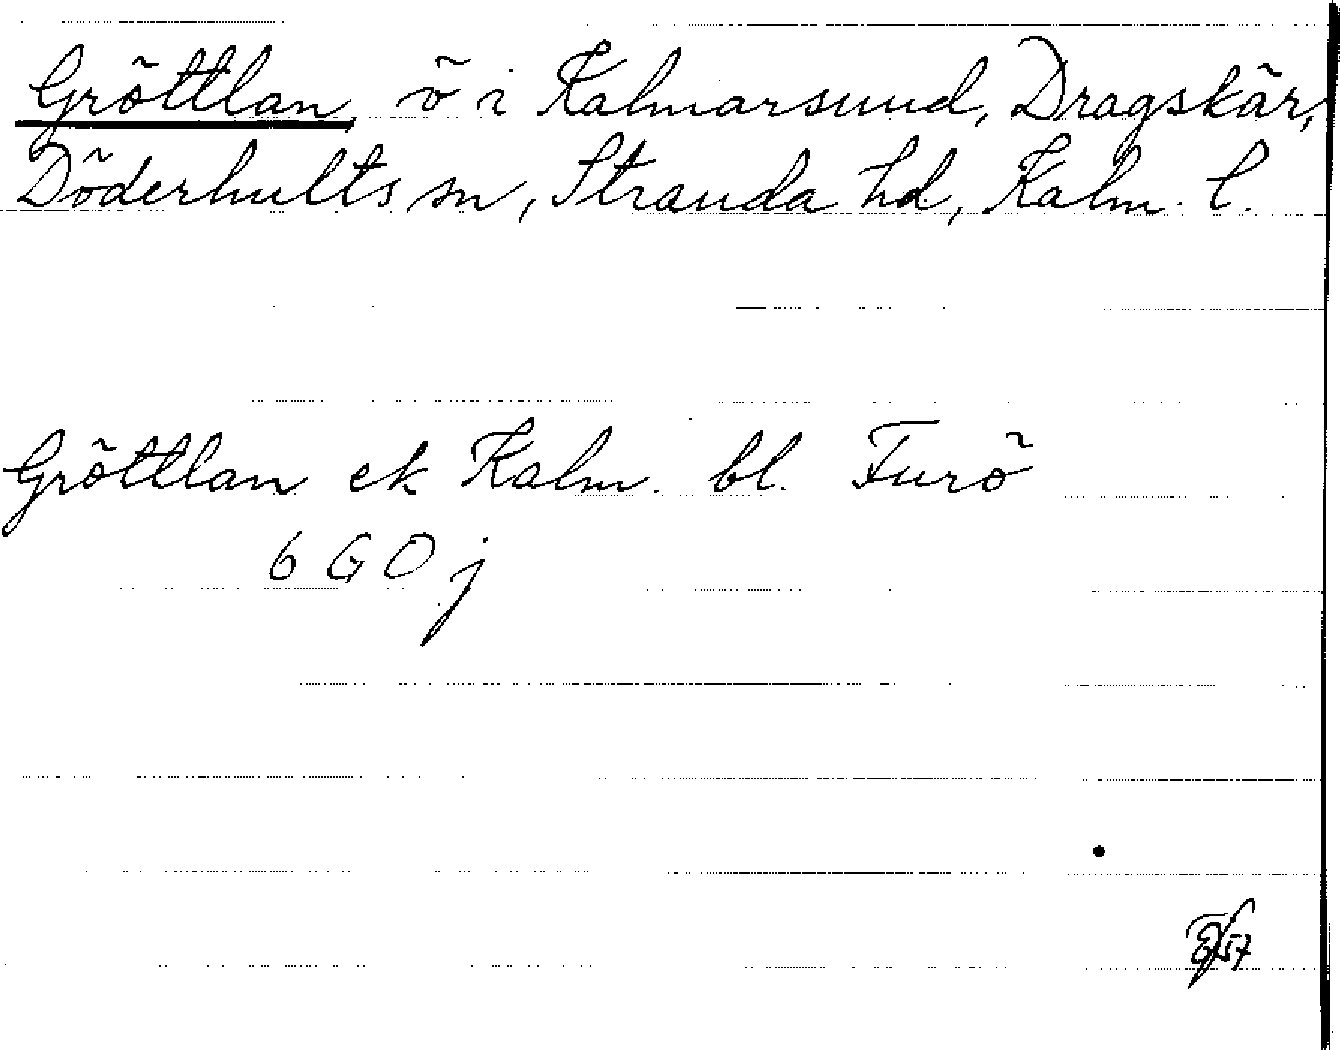 Gröttlan, ö i Kalmarsund, Dragskär,
Döderhults sn, Stranda hd, Kalm. l.
Gröttlan ek Kalm. bl. Furö
6 G O j